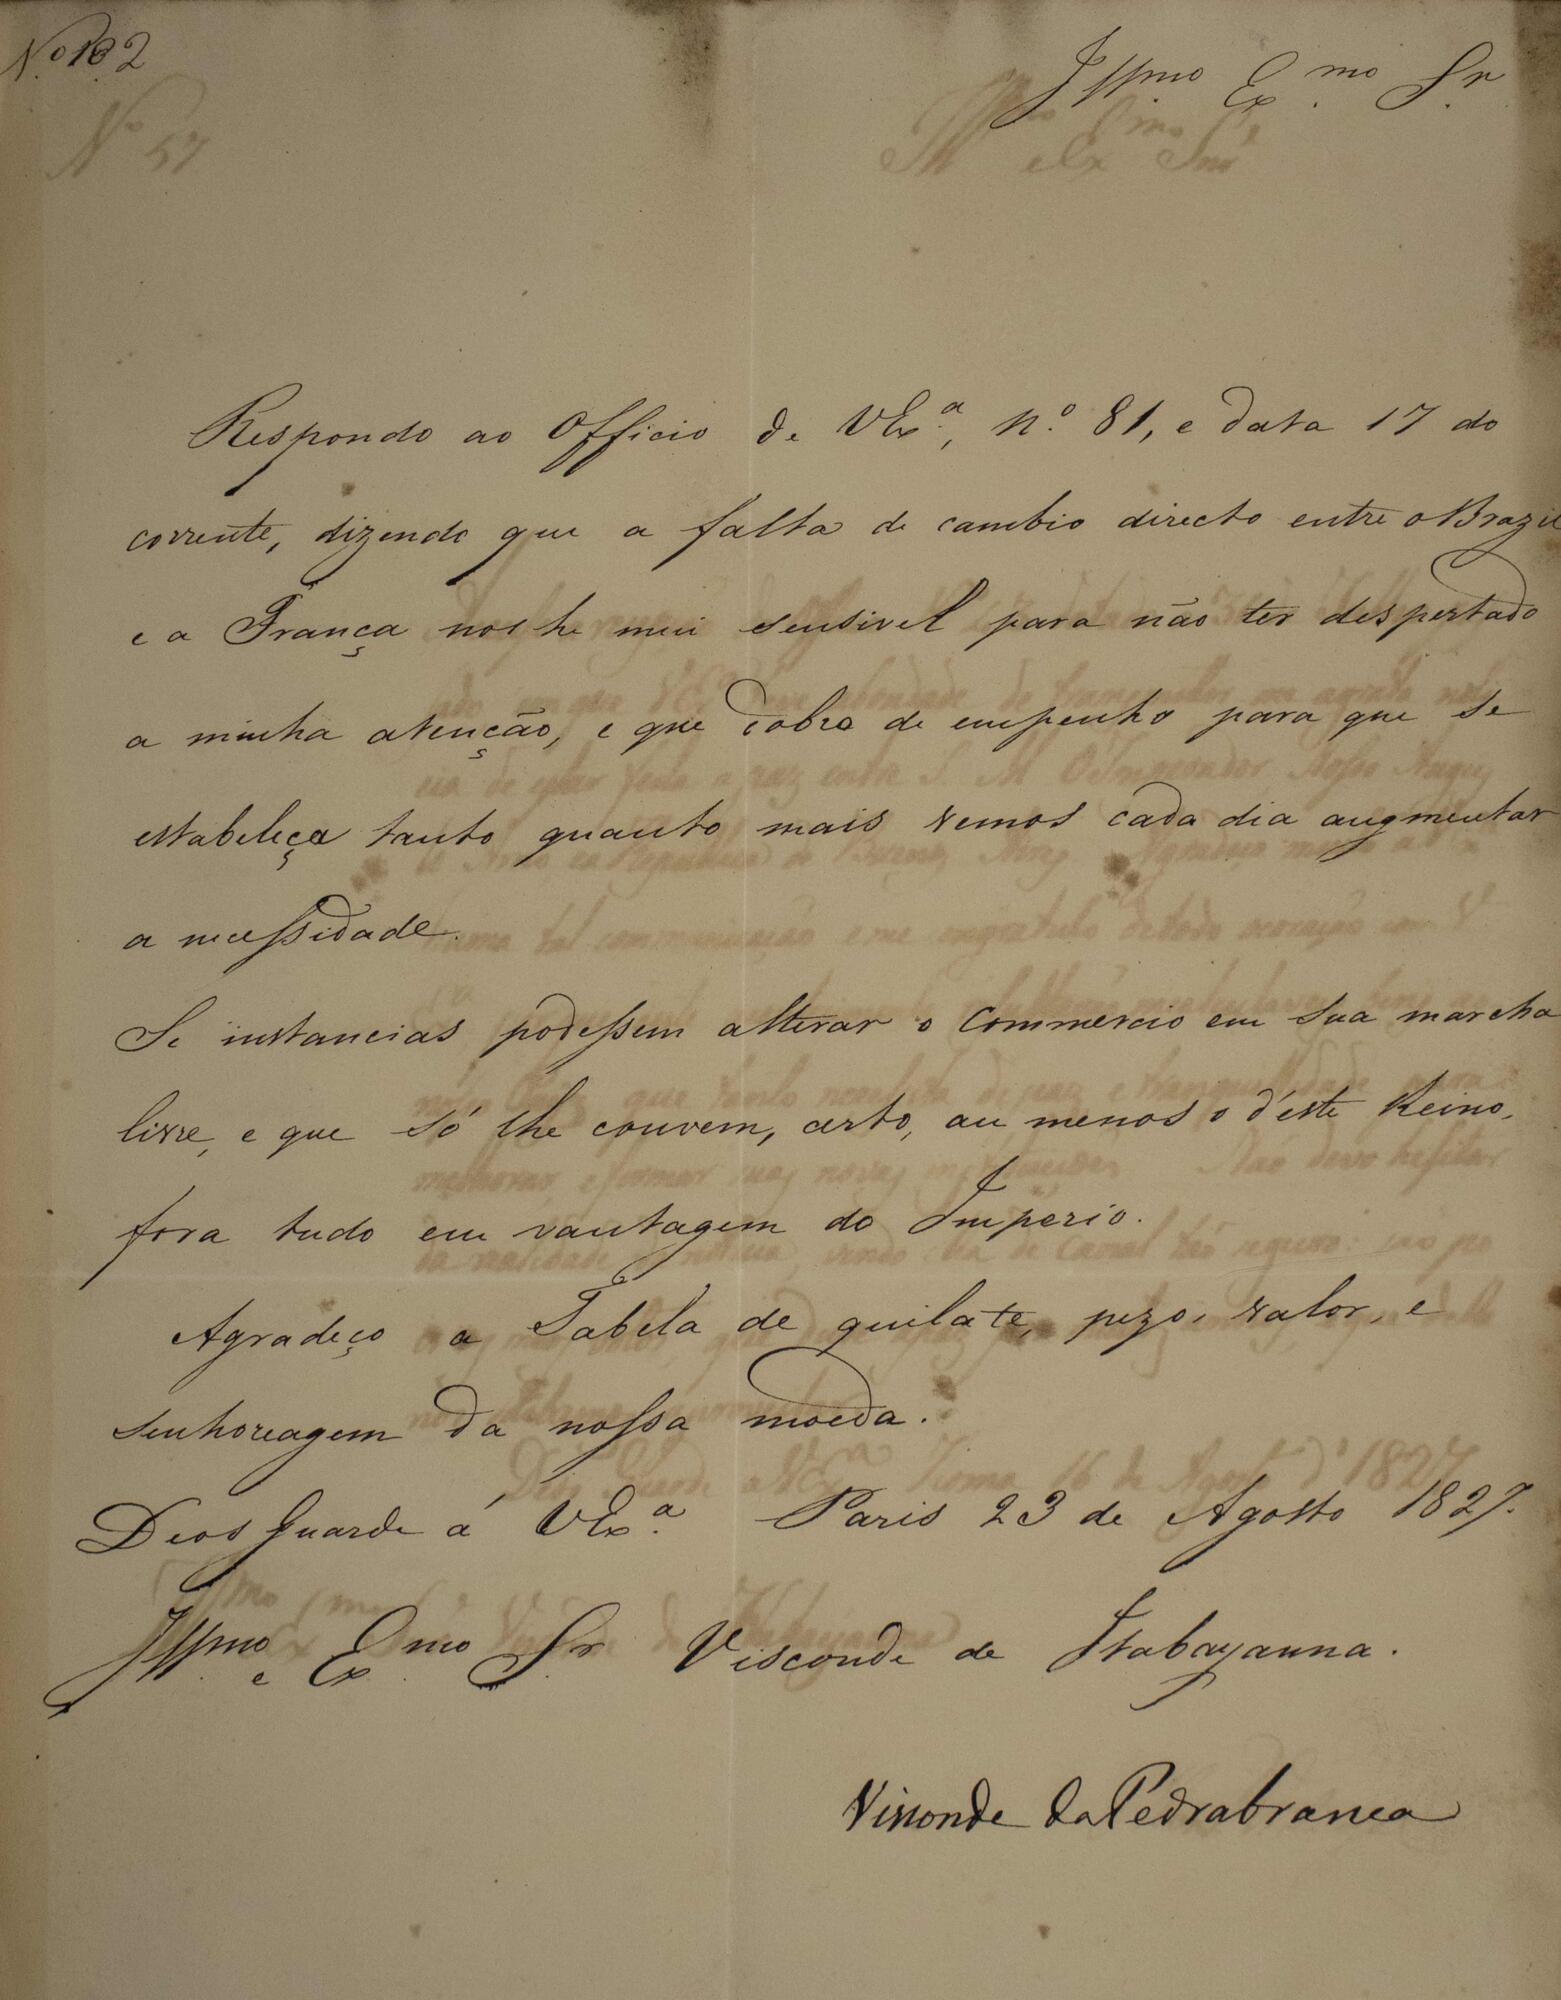 Nº 102
Illmo Exmo Sr
Respondo ao Officio de VExª, nº 81, e data 17 do
corrente, dizendo que a falta de cambio directo entre o Brazil
e a França nos he mui sensivel para não ter despertado
a minha atenção, e que dobro de empenho para que se
estabeleça tanto quanto mais vemos cada dia augmentar
a necessidade.
Se instancias podessem alterar o Commercio em sua marcha
livre, e que só lhe convem, certo, au menos o d'este Reino,
fora tudo em vantagem do Imperio.
Agradeço a Tabela de quilate, pezo, valor, e
senhoreagem da nossa moeda.
Deos Guarde á VExª Paris 23 de Agosto 1827.
Illmo e Exmo Sr Visconde de Itabayanna.
Visconde da Pedrabranca